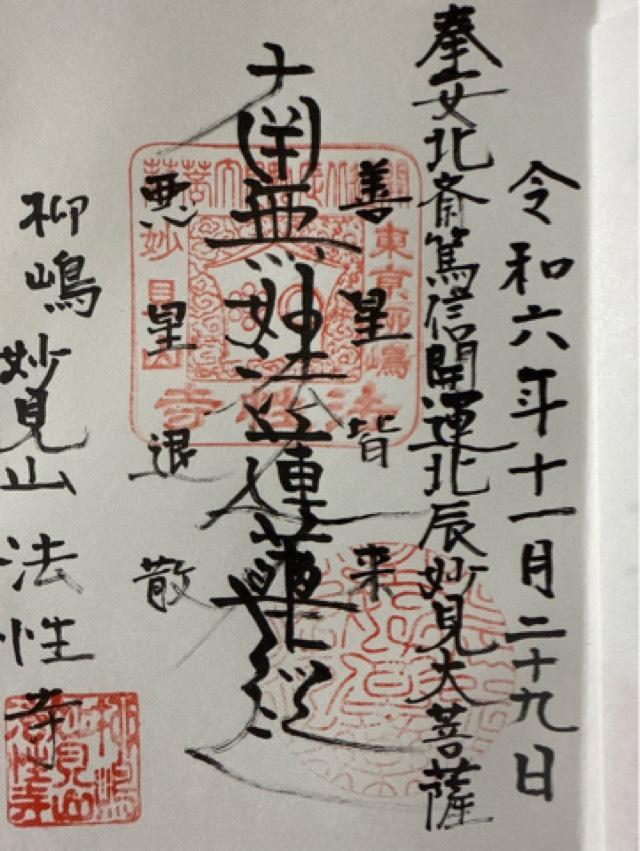 令和六年十一月二十九日
奉安北斎篤信開運北辰妙見大菩薩
善星皆来
南無妙法蓮華経
悪星退散
柳嶋妙見山法性寺
東京柳嶋
妙見山
法性寺
柳嶋
妙見山
法性寺